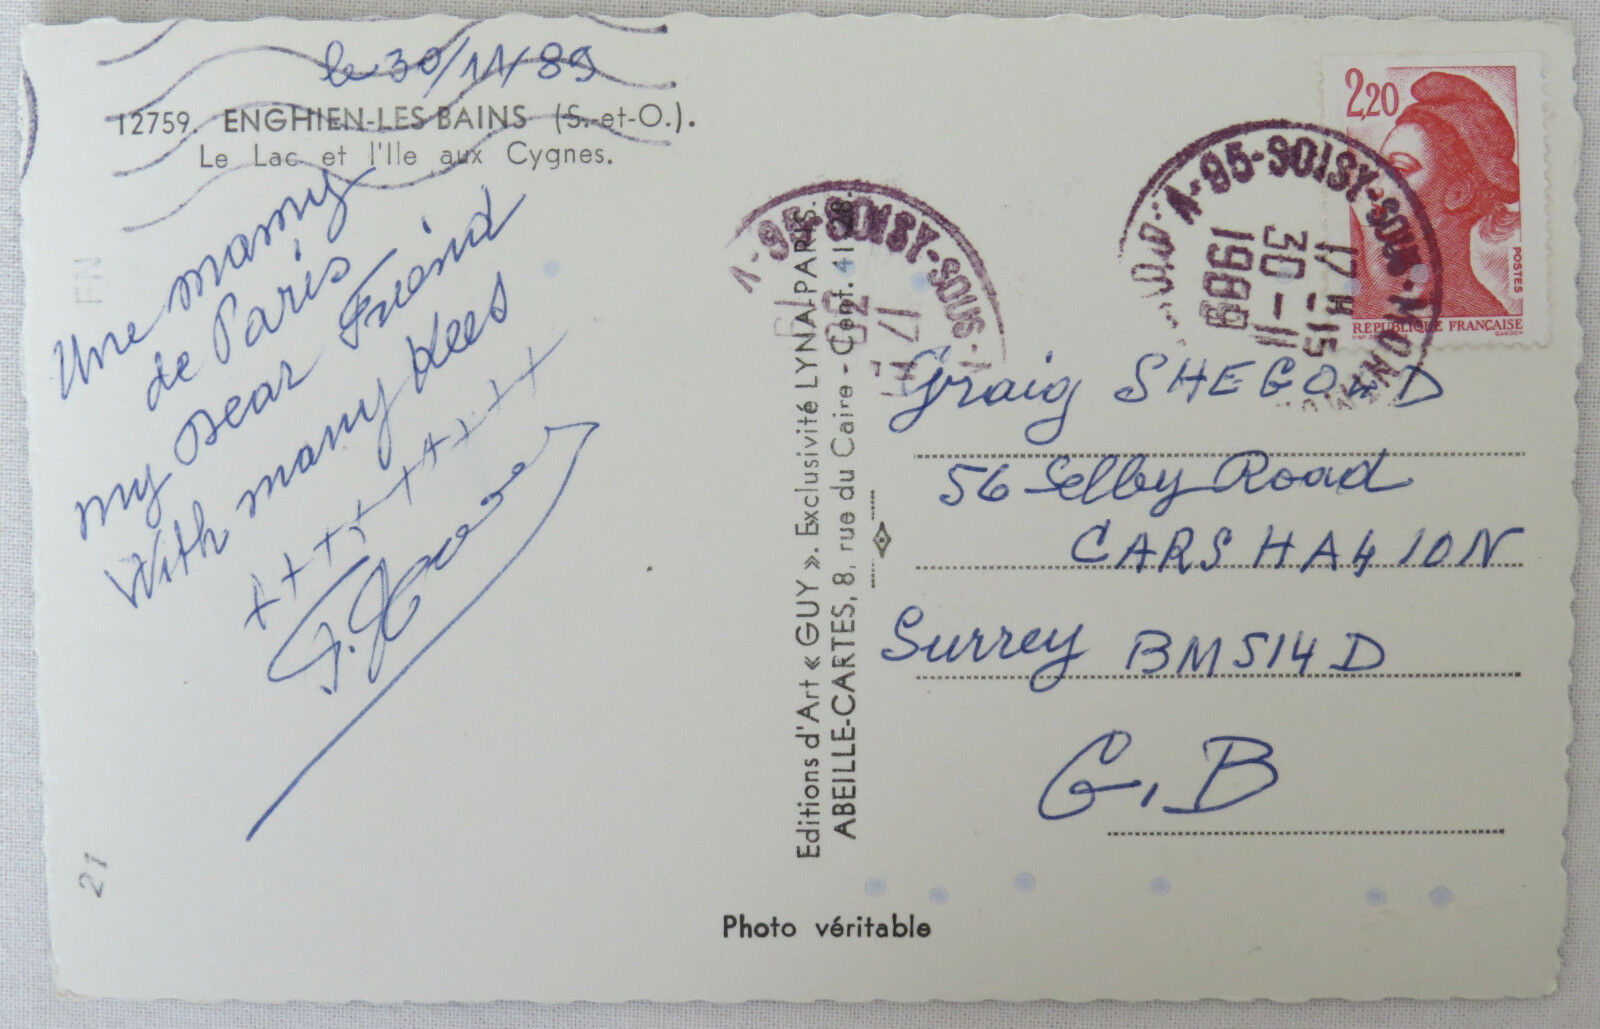 le 30/11/89
12759. ENGHIEN-LES BAINS (S.-et-O.).
Le Lac et l'Ile aux Cygnes.
Une mamy
de Paris
my Dear Friend
With many Kees
+++++++++++
21
Editions d'Art « GUY ». Exclusivité LYNA-PARIS.
ABEILLE-CARTES, 8, rue du Caire - Cent. 41
Photo véritable
2,20
POSTES
REPUBLIQUE FRANÇAISE
GANDON
95-SOISY-SOUS-MON
17 H 15
30-11
1989
95-SOISY-SOUS-
17 H
30
Graig SHEGOLD
56 Selby Road
CARSHA410N
Surrey BM514D
G.B